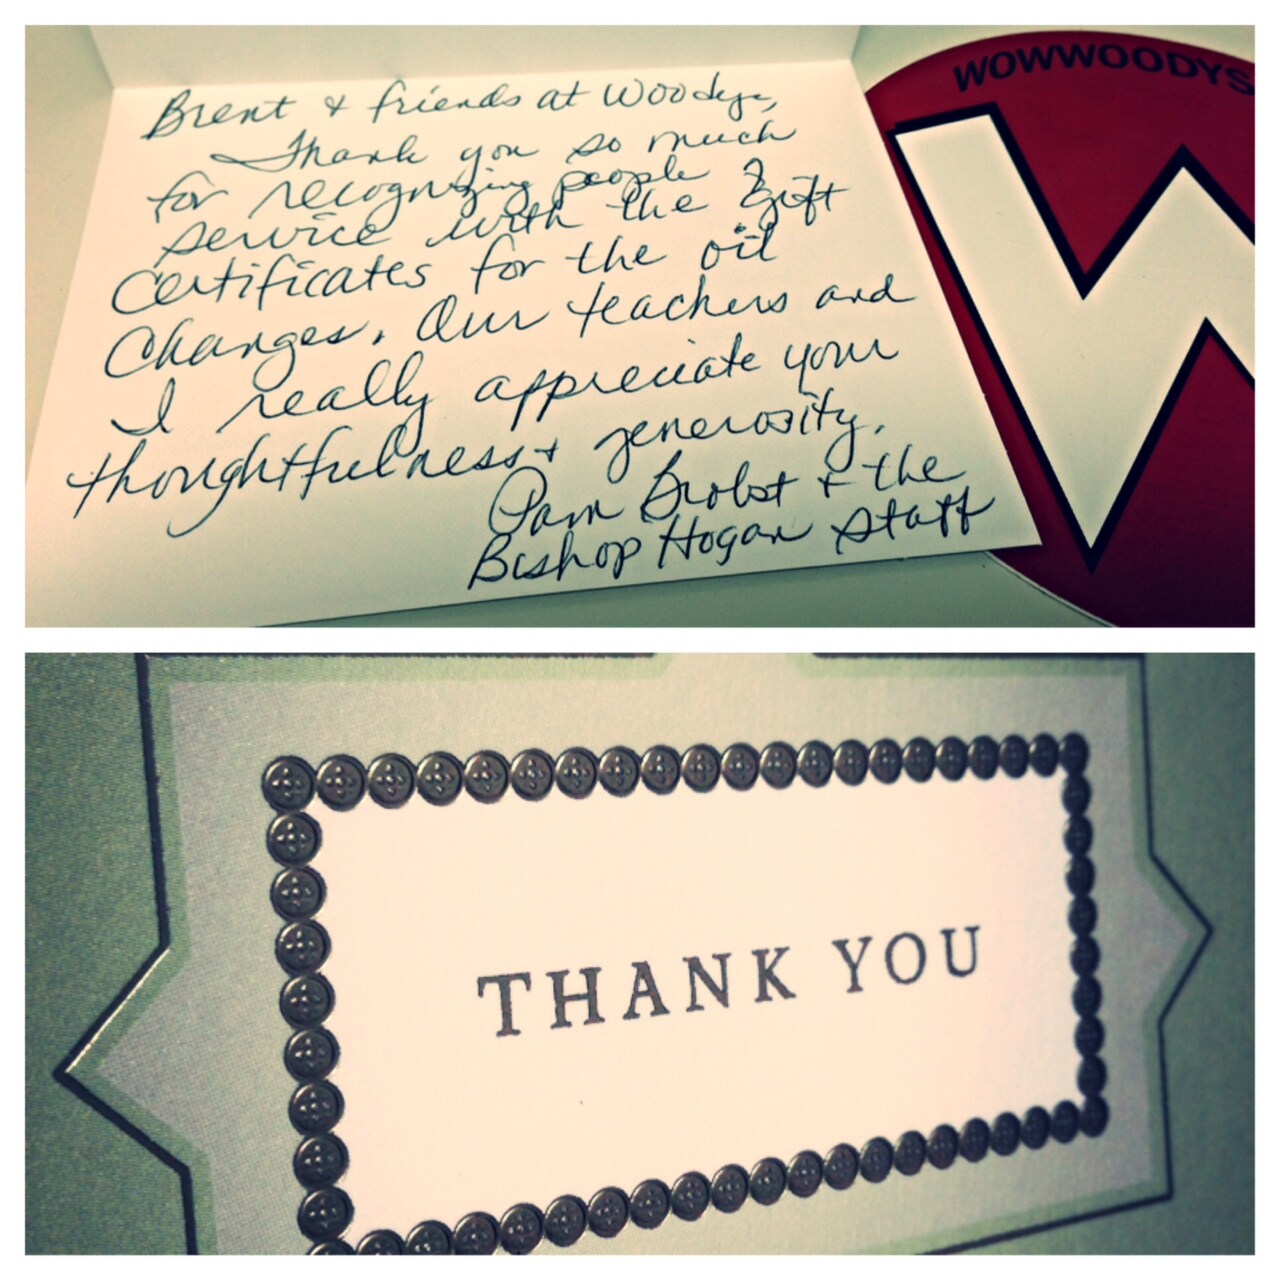 Brent & friends at Woodys,
Thank you so much
for recognizing people &
service with the gift
Certificates for the oil
Changes. Our teachers and
I really appreciate your
thoughtfulness & generosity.
Pam Brobst & the
Bishop Hogan Staff
WOWWOODYS
W
THANK YOU